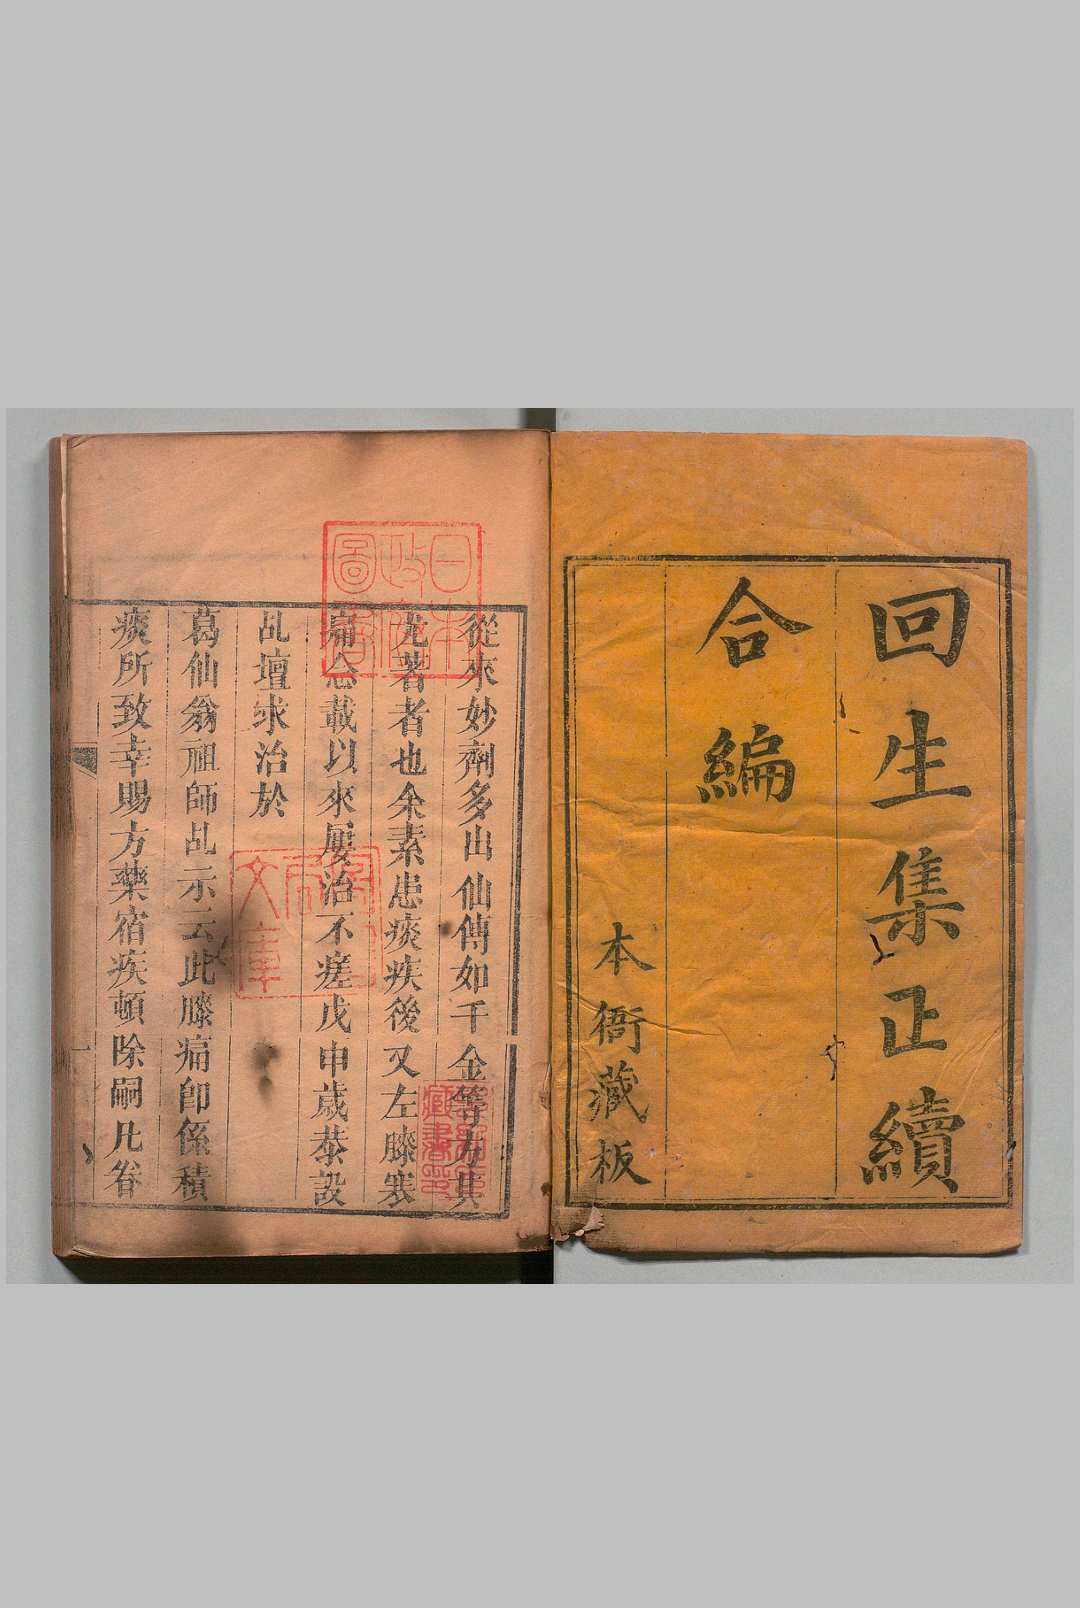 回生集正續
合編
本衙藏板
從來妙劑多出仙傳如千金等方其
尤著者也余素患痰疾後又左膝寒
痛 載以來屢治不瘥戊申歲恭設
乩壇求治於
葛仙翁祖師乩示云此膝痛卽係積
痰所致幸賜方藥宿疾頓除嗣凡眷
一
日本政府圖書
文庫
藏書印